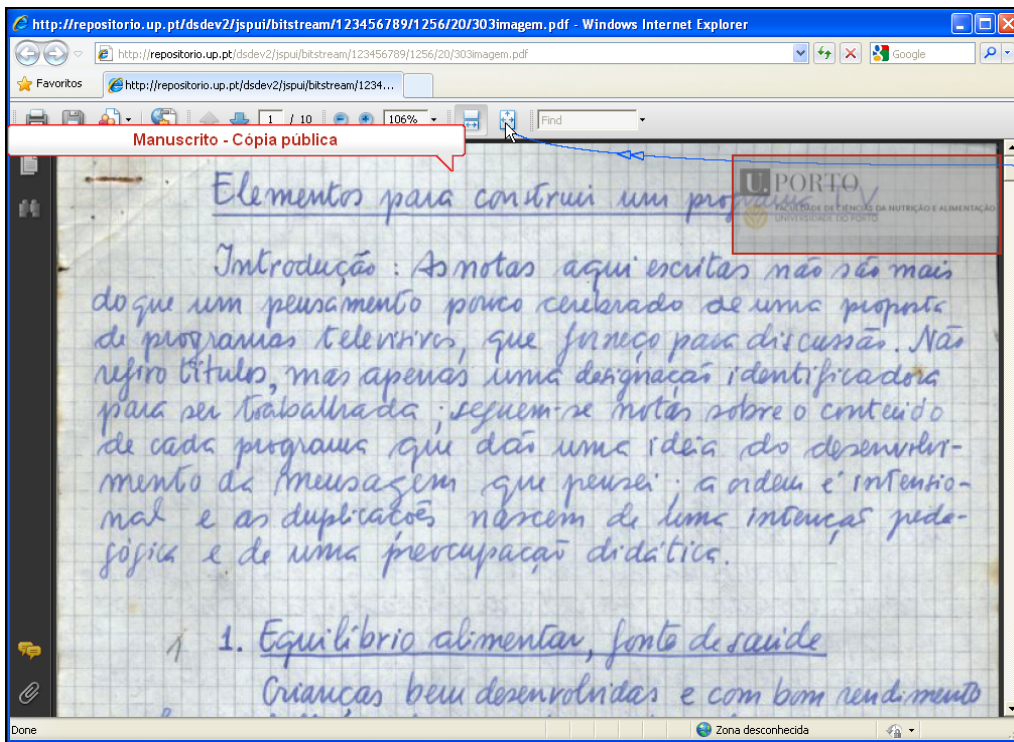 http://repositorio.up.pt/dsdev2/jspui/bitstream/123456789/1256/20/303imagem.pdf - Windows Internet Explorer
http://repositorio.up.pt/dsdev2/jspui/bitstream/123456789/1256/20/303imagem.pdf
Google
Favoritos
http://repositorio.up.pt/dsdev2/jspui/bitstream/1234...
1 / 10 106% Find
Manuscrito - Cópia pública
U. PORTO
FACULDADE DE CIÊNCIAS DA NUTRIÇÃO E ALIMENTAÇÃO
UNIVERSIDADE DO PORTO
Elementos para construir um programa TV
Introdução: As notas aqui escritas não são mais
do que um pensamento pouco cerebrado de uma proposta
de programas televisivos, que forneço para discussão. Não
refiro títulos, mas apenas uma designação identificadora
para ser trabalhada; seguem-se notas sobre o conteúdo
de cada programa que dão uma ideia do desenvolvi-
mento da mensagem que pensei; a ordem é intensio-
nal e as duplicações nascem de uma intenção peda-
gógica e de uma preocupação didática.
1 1. Equilíbrio alimentar, fonte de saúde
Crianças bem desenvolvidas e com bom rendimento
Done
Zona desconhecida